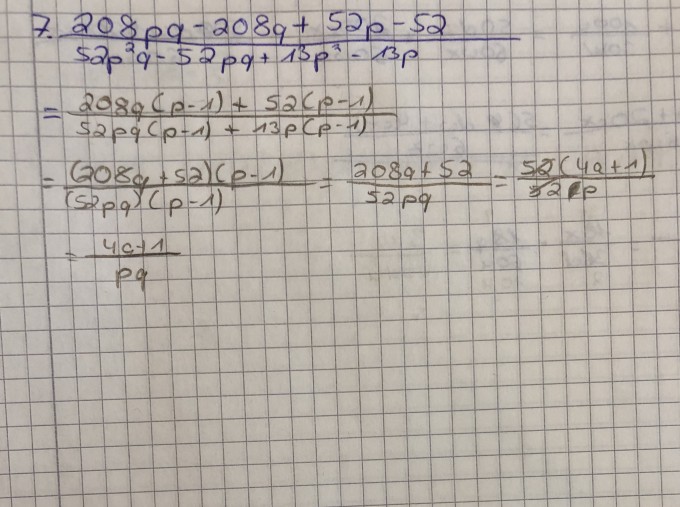 7. (208pq - 208q + 52p - 52) / (52p²q - 52pq + 13p² - 13p)
= (208q(p-1) + 52(p-1)) / (52pq(p-1) + 13p(p-1))
= ((208q + 52)(p-1)) / ((52pq)(p-1)) = (208q + 52) / (52pq) = (52(4q+1)) / (52 p)
= (4q+1) / (pq)